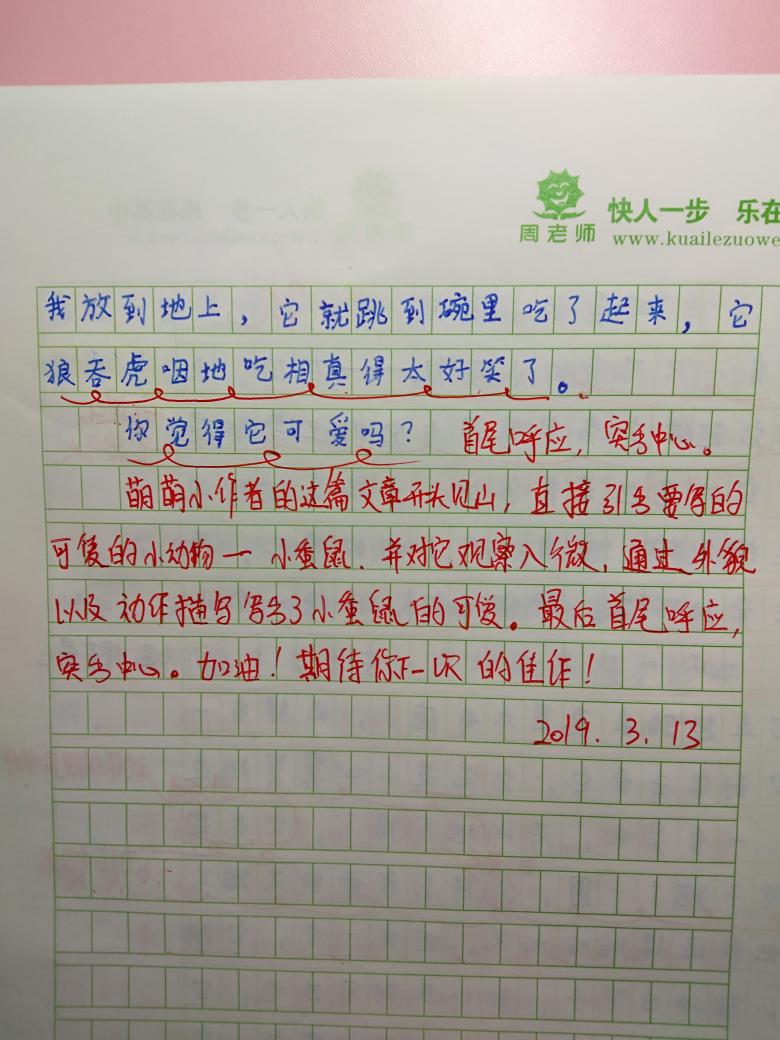 快人一步 乐在
周老师
www.kuailezuowe
我放到地上，它就跳到碗里吃了起来，它
狼吞虎咽地吃相真得太好笑了。
你觉得它可爱吗？ 首尾呼应，突出中心。
萌萌小作者的这篇文章开头见山，直接引出要写的
可爱的小动物一小仓鼠．并对它观察入微，通过外貌
以及动作描写写出了小仓鼠的可爱。最后首尾呼应，
突出中心。加油！期待你下一次的佳作！
2019.3.13